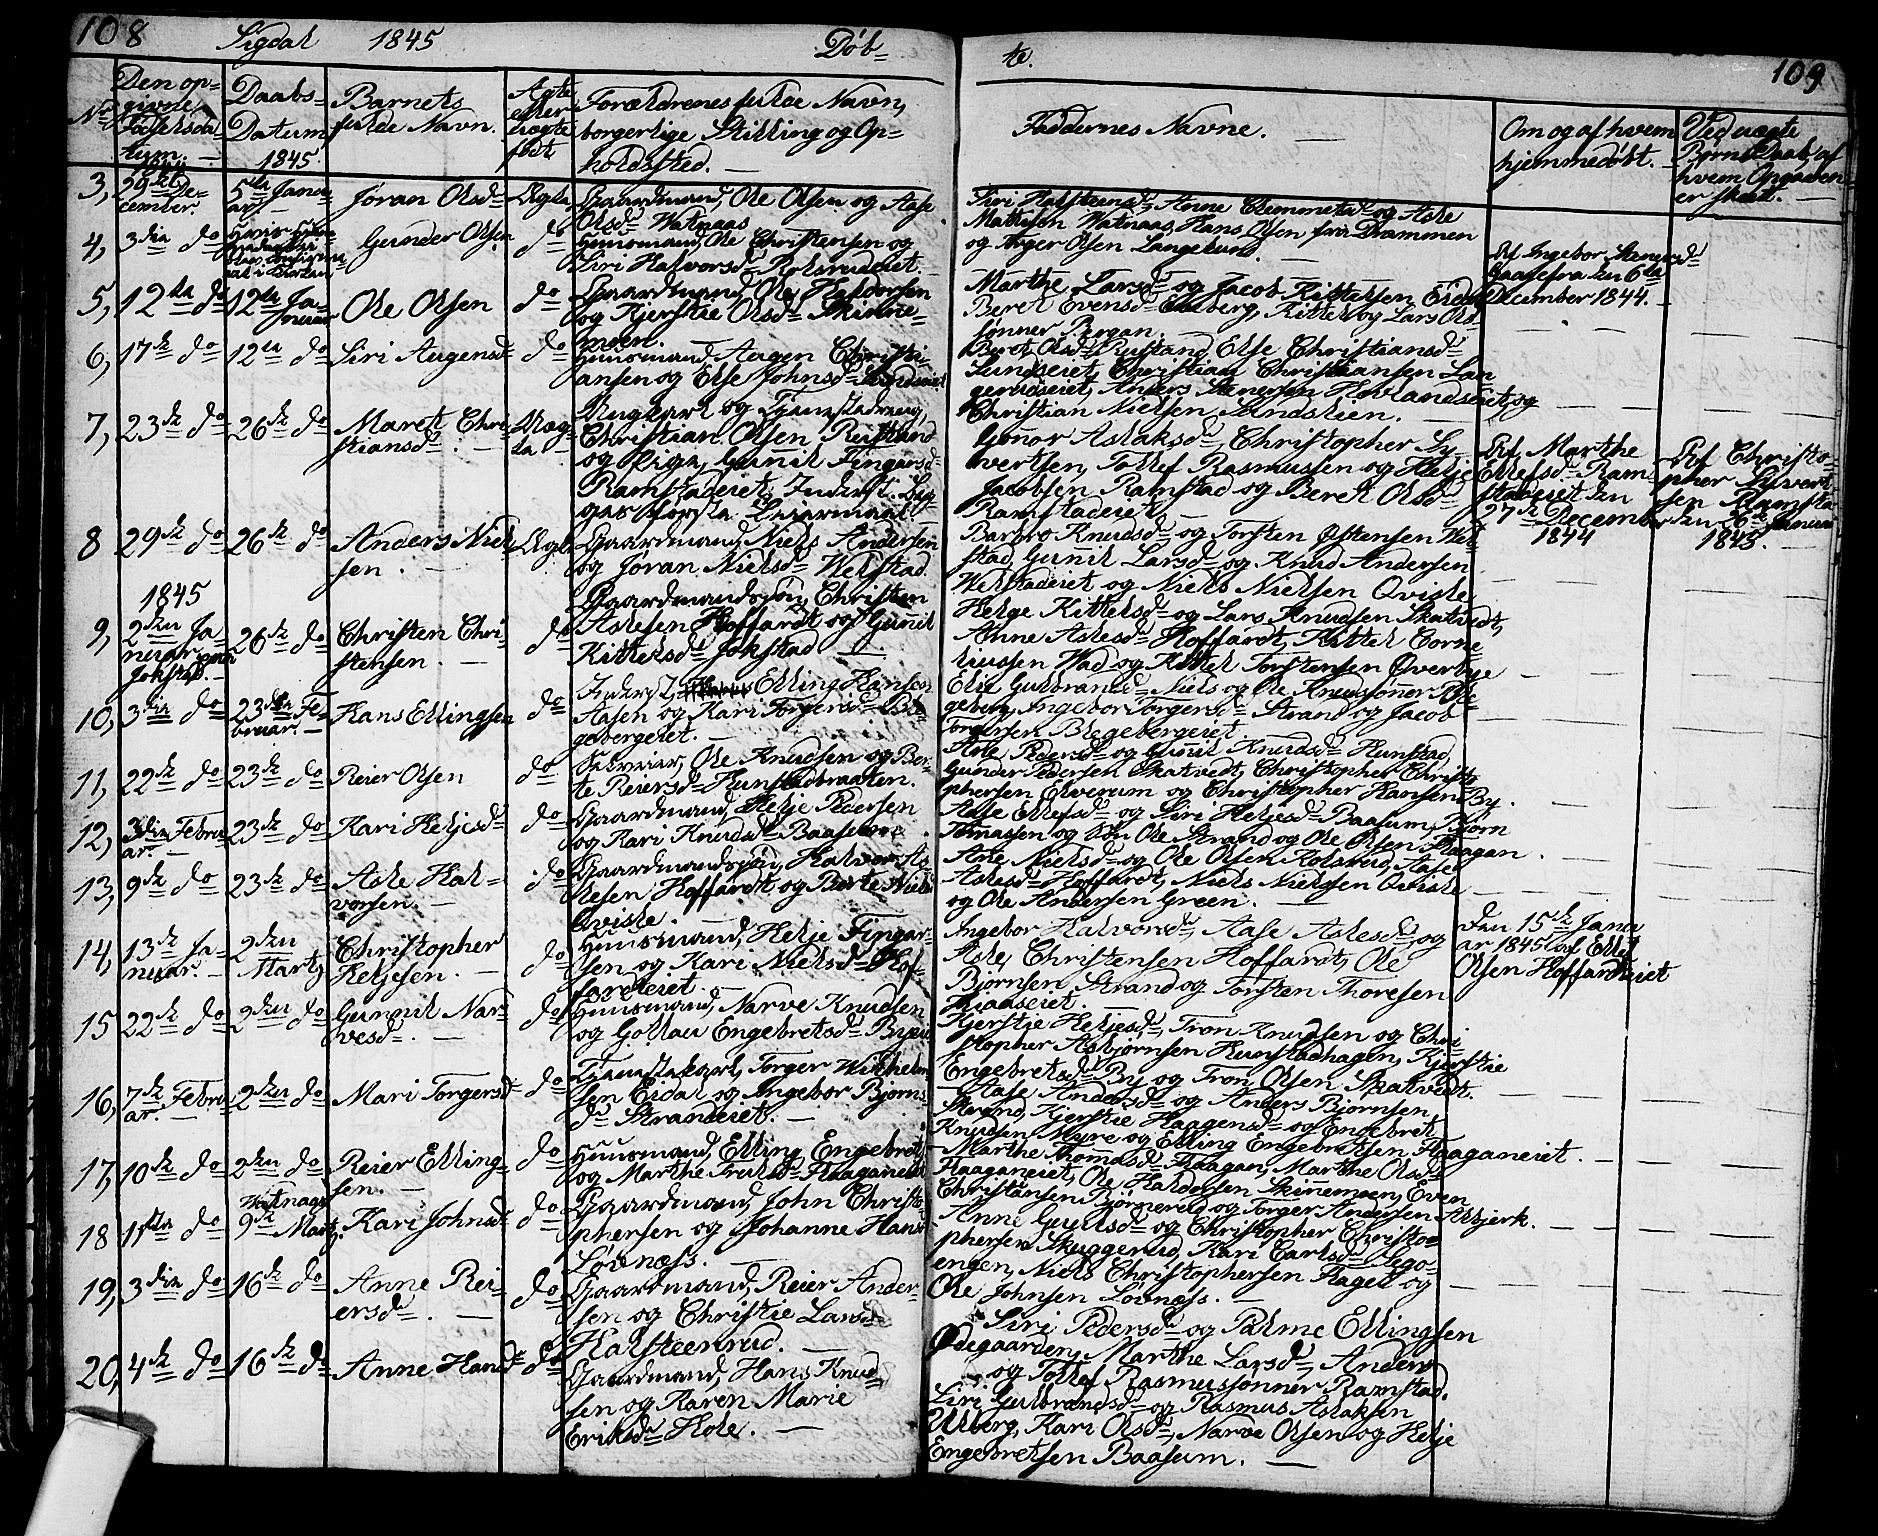 108 Sigdal 1845 Døb-
te. 109
No
Den op-
givne
Fødselsda-
tum.
Daabs-
Datum
1845
Barnets
fulde Navn.
Ægte
eller
uægte
født
Forældrenes fulde Navn,
borgerlige Stilling og Op-
holdssted. —
Faddernes Navne. —
Om og af hvem
hjemmedøbt.
Ved uægte
Børns Daab, af
hvem Opgaven
er skeet. —
3, 29de De-
cember.
5te Janu-
ar. —
Jøran Olsdr
Ægte
Gaardmand, Ole Olsen og Aase
Olsdr Watnaas
Siri Halsteensdr, Anne Clemmetsdr og Aske
Mattisen Watnaas, Hans Olsen fra Drammen
og Torger Olsen Langelund. —
4, 3die do
Gunder Olsen
do
Huusmand, Ole Christensen og
Siri Halvorsdr Kolsrudeiet. —
Marthe Larsdr og Jacob Kittelsen Eidal
Beret Evensdr Ulberg, Kittel og Lars Ols-
sønner Bergan. —
Af Ingebor Steensdr
Gaasefra den 6te
December 1844. —
5, 12te do
12te Ja-
nuar
Ole Olsen
do
Gaardmand, Ole Halvorsen
og Kjerstie Olsdr Skinne-
moen.
6, 17de do
12te do
Siri Augensdr
do
Huusmand, Augen Christi-
ansen og Else Johnsdr Lundseiet
Beret Olsdr Rustand, Else Christiansdr
Lundseiet, Christian Christiansen Lan-
gerudseiet, Anders Steensen Hovlandseiet og
Christian Nielsen Sandsteen. —
7, 23de do
26de do
Maret Chri-
stiansdr. —
Uæg-
te
Ungkarl og Tjenestedreng,
Christian Olsen Rustand
og Pige, Gunil Fingarsdr
Ramstadeiet, Inderst. Beg-
ges første Leiermaal. —
Gunor Aslaksdr, Christopher Sy-
vertsen, Tollef Rasmussen og Helje
Jacobsen Ramstad og Beret Olsdr
Ramstadeiet. —
Af Marthe
Ellefsdr Ram-
stadeiet den
27de December
1844
Af Christo-
pher Syvert-
sen Ramstad
den 26de Januar
1845. —
8 29de do
26de do
Anders Niel-
sen. —
Ægte
Gaardmand, Niels Andersen
og Jøran Nielsdr Welstad.
Barbro Knudsdr og Torsten Østensen Wel-
stad, Gunil Larsdr og Knud Andersen
Welstadeiet og Niels Nielsen Qvisle
1845
9, 2den Ja-
nuar paa
Jokstad. —
26de do
Christen Chri-
stensen. —
do
Gaardmandssøn, Christen
Aslesen Hoffardt og Gunil
Kittelsdr Jokstad —
Helge Kittelsdr og Lars Knudsen Skatvedt,
Anne Aslesdr Hoffardt, Kittel Corne-
liussen Wad og Kittel Torstensen Øverbye
10, 3die do
23de Fe-
bruar. —
Hans Ellingsen
do
Inderst, Elling Hansen
Aasen og Kari Torgersdr Ble-
gebergeiet. —
Elie Gulbrandsdr, Niels og Ole Knudssønner Ble-
geberg, Ingebor Torgersdr Strand og Jacob
Torgersen Blegebergeiet.
11, 22de do
23de do
Reier Olsen
do
Ole Knudsen og Ber-
te Reiersdr Hunstadbraaten.
Ane Pedersdr og Gunil Knudsdr Hunstad,
Gunder Pedersen Skatvedt, Christopher Christo-
phersen Elverum og Christopher Hansen By.
12, 3die Febru-
ar. —
23de do
Kari Heljesdr
do
Gaardmand, Helje Pedersen
og Kari Knudsdr Baasum.
Aase Ellefsdr og Siri Heljesdr Baasum, Bjørn
Tomassen og Søn Ole Strand og Ole Olsen Haagan
13, 9de do
23de do
Asle Hal-
vorsen. —
do
Gaardmandssøn, Halvor As-
lesen Hoffardt og Berte Nielsdr
Qvisle. —
Ane Nielsdr og Ole Olsen Kolsrud, Aase
Aslesdr Hoffardt, Niels Nielsen Qvisle
og Ole Andersen Green. —
14, 13de Ja-
nuar. —
2den
Martz
Christopher
Heljesen. —
do
Huusmand, Helje Fingar-
sen og Kari Nielsdr Hof-
fardteiet. —
Ingebor Halvorsdr, Aase Aslesdr og
Asle Christensen Hoffardt, Ole
Bjørnsen Strand og Torsten Thoresen
Haaaseiet.
Den 15de Janu-
ar 1845 af Ellef
Olsen Hoffardteiet
15 22de do
2den do
Gunnil Nar-
vesdr. —
do
Huusmand, Narve Knudsen
og Gollau Engebretsdr Byeiet
Kjerstie Heljesdr, Tron Knudsen og Chri-
stopher Asbjørnsen Hunstadhagen, Kjerstie
Engebretsdr By og Tron Olsen Skatvedt.
16, 7de Febru-
ar. —
2den do
Mari Torgersdr
do
Tjenestekarl, Torger Wilhelm-
sen Eidal og Ingebor Bjørns-
dr Strandeiet. —
Aase Andersdr og Anders Bjørnsen
Strand, Kjerstie Haagensdr og Engebret
Knudsen Myre og Elling Engebretsen Haaganeiet.
17, 10de do
2den do
Reier Elling-
sen. —
do
Huusmand, Elling Engebretsen
og Marthe Trulsdr Haaganeiet
Marthe Thomasdr Haagan, Marthe Olsdr
Haaganeiet, Ole Halvorsen Skinnemoen, Even
Christansen Bjørnerud og Torger Andersen Asbjerk.
18 11te do
Watnaas
9de Martz.
Kari Johnsdr
do
Gaardmand, John Christo-
phersen og Johanne Hansdr
Løvnæss. —
Anne Gulsdr og Christopher Christo-
phersen Skuggerud, Kari Carlsdr Sego-
engen, Niels Christophersen Flagel og
Ole Johnsen Lovnæss. —
19, 3die do
16de do
Anne Rei-
ersdr. —
do
Gaardmand, Reier Ander-
sen og Christie Larsdr
Halsteenrud. —
Siri Pedersdr og Palme Ellingsen
Ødegaarden, Marthe Larsdr, Anders
og Tollef Rasmussønner Ramstad.
20, 4de do
16de do
Anne Hansdr
do
Gaardmand, Hans Knud-
sen og Karen Marie
Eriksdr Hole. —
Siri Gulbrandsdr og Rasmus Aslaksen
Ulberg, Kari Olsdr, Narve Olsen og Helje
Engebretsen Baasum. —